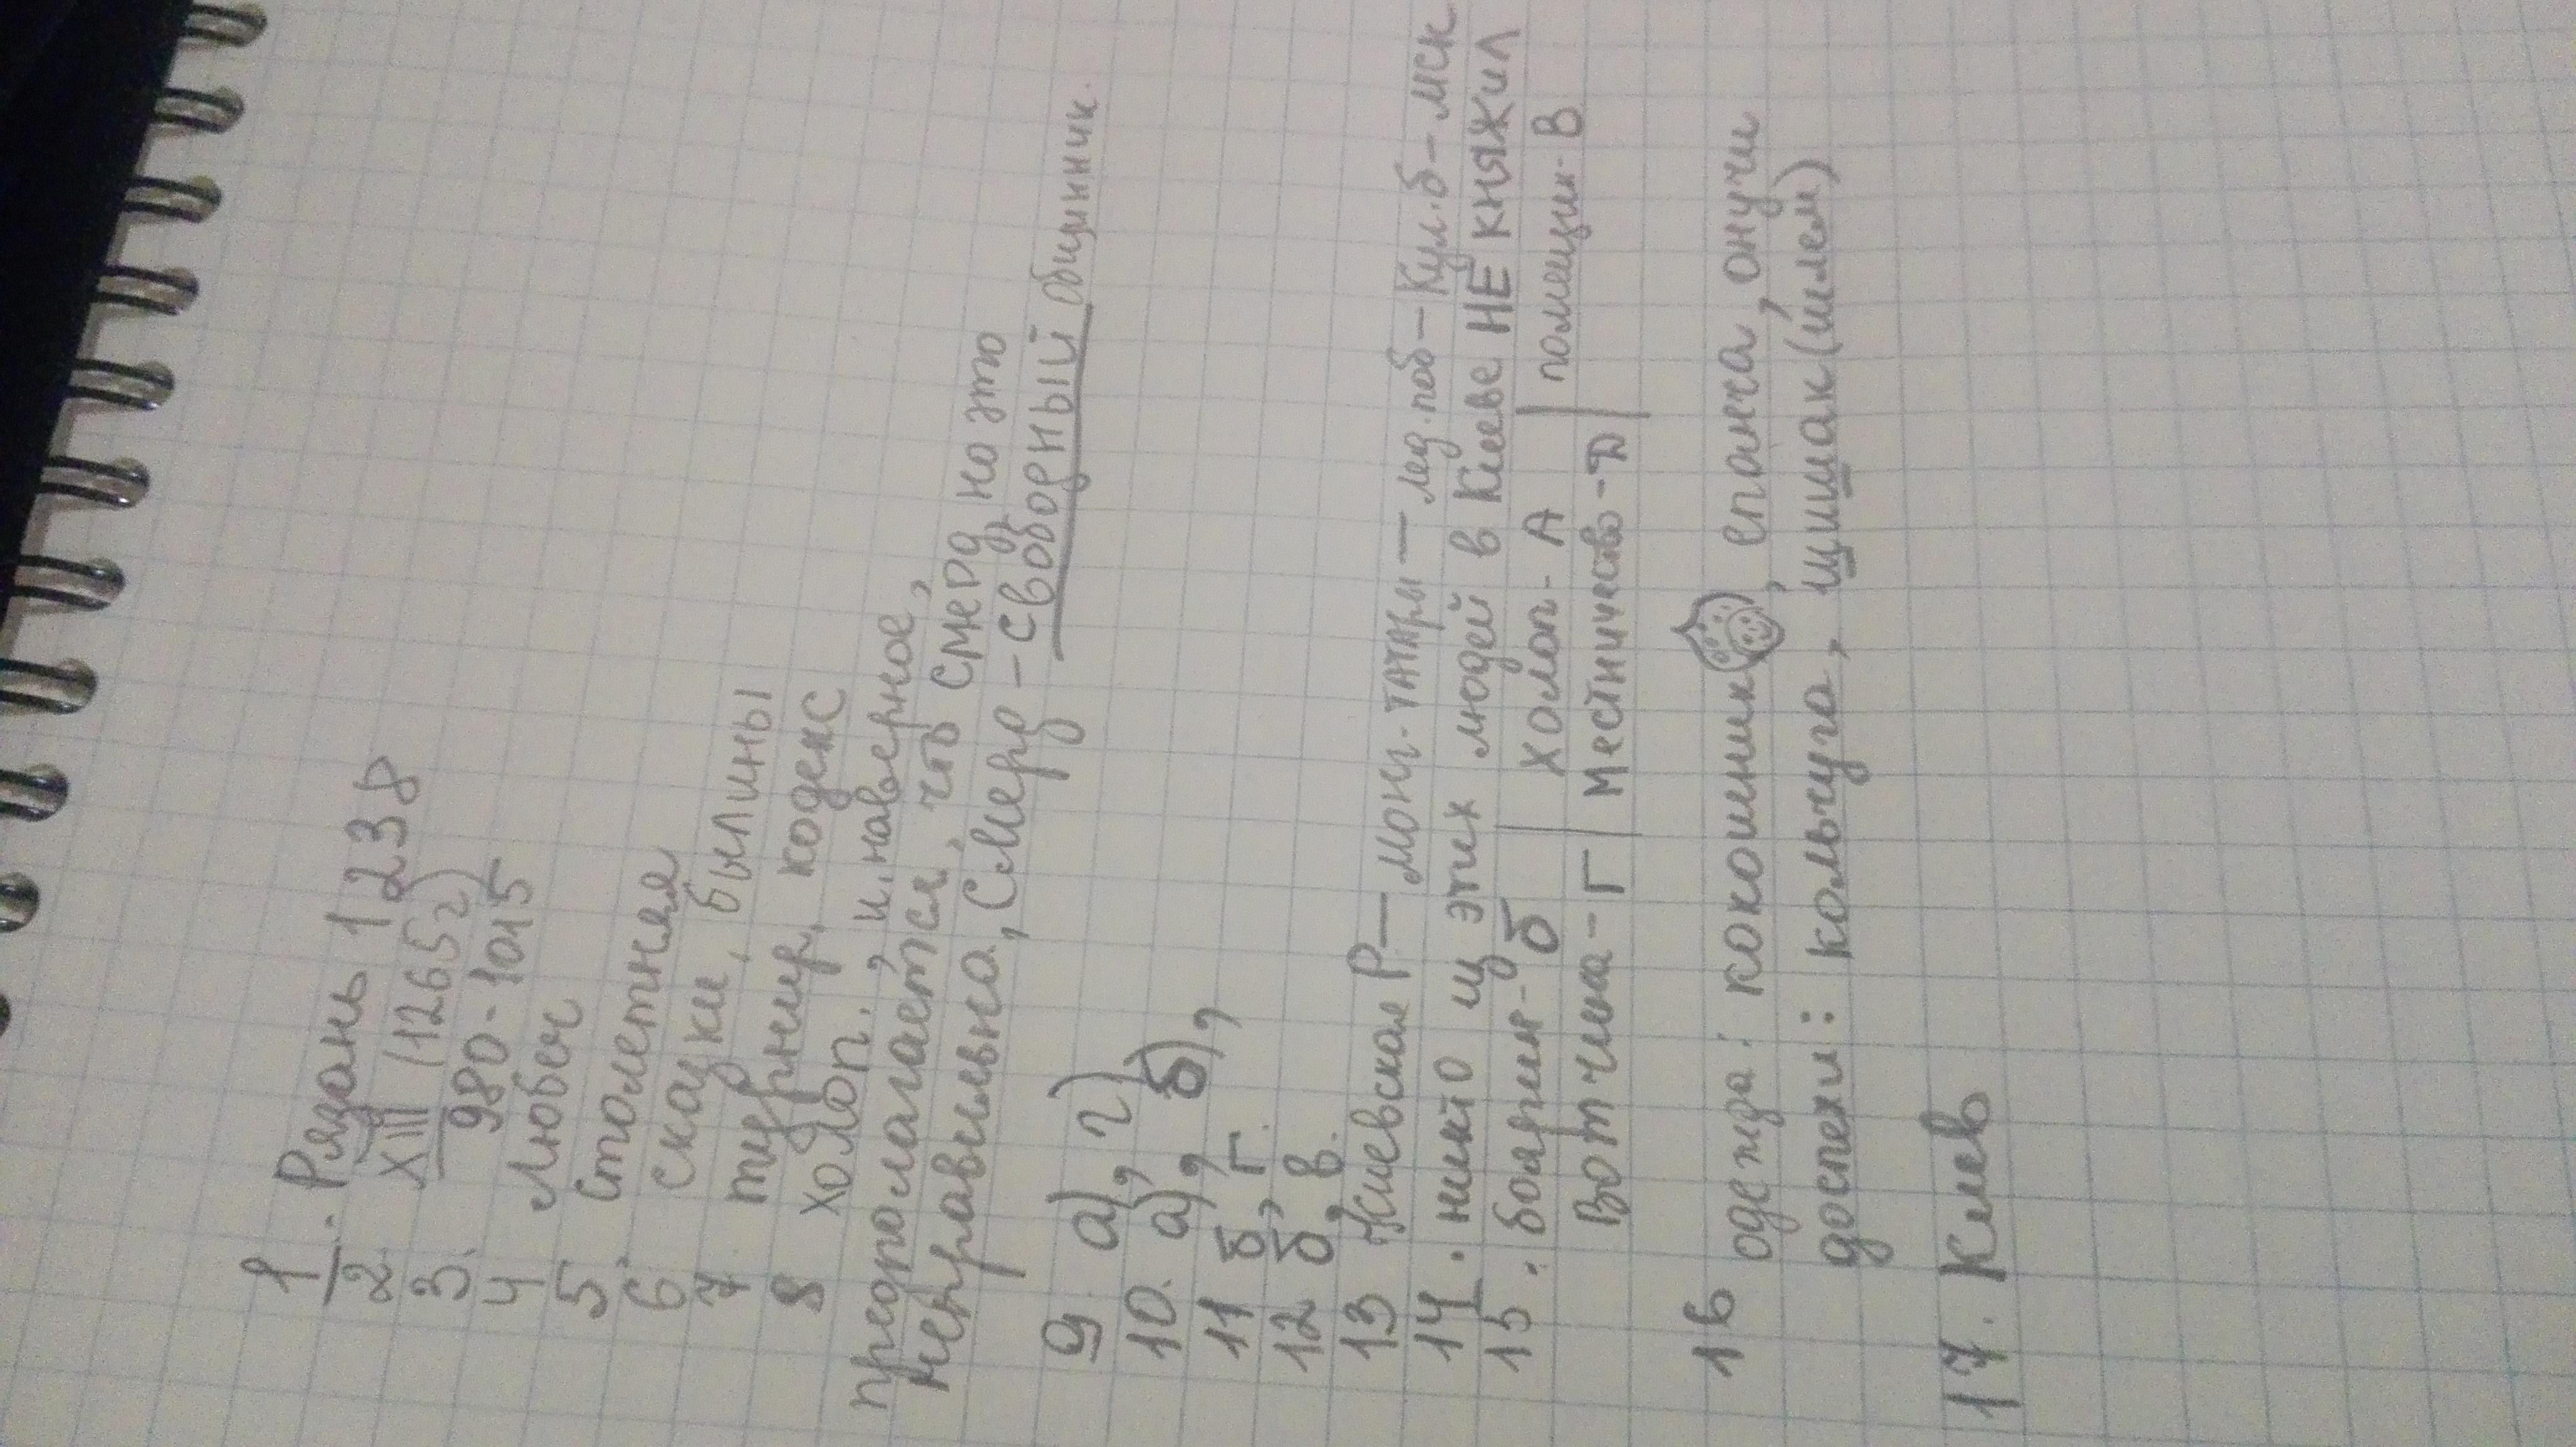 1. Рязань 1238
2. XIII (1265г)
3. 980-1015
4 Любеч
5 Столетняя
6. сказки, былины
7 турнир, кодекс
8 холоп., и, наверное,
предполагается, что смерд, но это
неправильно, Смерд - свободный общинник.
9. а), г)
10. а), б),
11 б, г.
12 б, в.
13 Киевская Р— монг-татары — лед.поб— Кул.б— мск
14. никто из этих людей в Киеве НЕ КНЯЖИЛ
15. боярин-б | Холоп- А | помещик-В
Вотчина-Г | Местничество-Д
16 одежда: кокошник, епанча, онучи
доспехи: кольчуга, шишак (шлем)
17. Киев